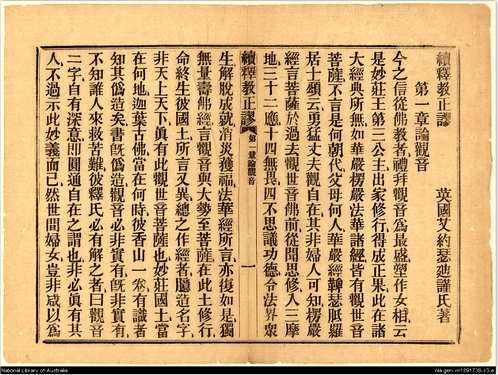 續釋教正謬
英國艾約瑟迪謹氏著
第一章論觀音
今之信從佛教者禮拜觀音爲最盛塑作女相云
是妙莊王第三公主出家修行得成正果此在諸
大經典所無如華嚴楞嚴法華諸經皆有觀世音
菩薩不言是何朝代父母何人華嚴經鞞瑟胝羅
居士頌云勇猛丈夫觀自在其非婦人可知楞嚴
經言菩薩於過去觀世音佛前從聞思修入三摩
地三十二應十四無畏四不思議功德令法界衆
續釋教正謬
第一章論觀音
一
生解脫成就消災獲福法華經所言亦復如是獨
無量壽佛經言觀音與大勢至菩薩在此土修行
命終生彼國土所言又異總之作經者臆造名字
非天上天下眞有此觀世音菩薩也妙莊國土當
在何地迦葉古佛當在何時彼香山一卷有識者
知其僞造矣書旣僞造觀音必非實有旣非實有
不知誰人來救苦難彼釋氏必有解之者曰觀音
二字自有深意卽圓通自在之謂也非必眞有其
人不過示此妙義而已然世間婦女豈非咸以爲
National Library of Australia
nla.gen-vn1891738-s3-e